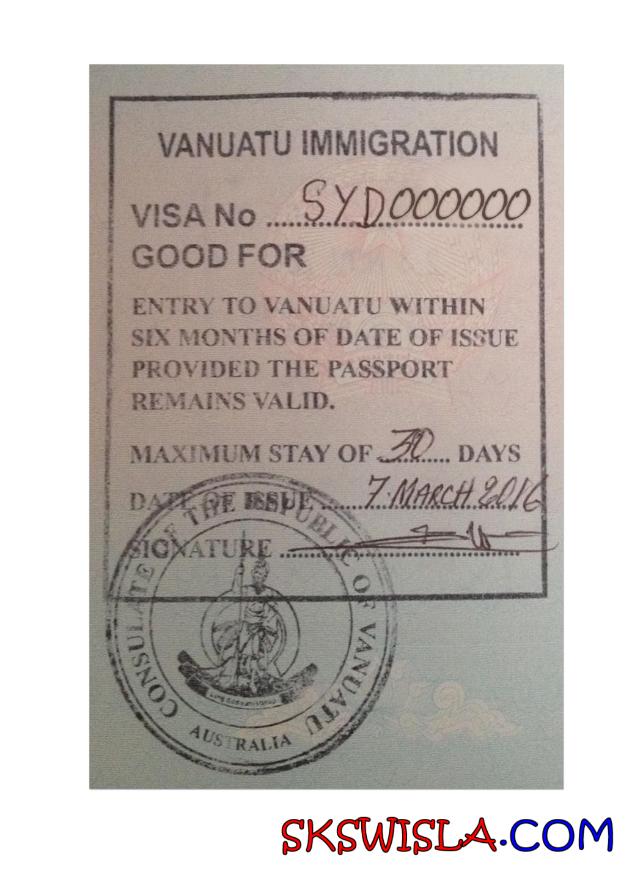 VANUATU IMMIGRATION
VISA No ..... SYD000000
GOOD FOR
ENTRY TO VANUATU WITHIN
SIX MONTHS OF DATE OF ISSUE
PROVIDED THE PASSPORT
REMAINS VALID.
MAXIMUM STAY OF 30 DAYS
DATE OF ISSUE ..... 7. MARCH 2016
SIGNATURE
CONSULATE OF THE REPUBLIC OF VANUATU
AUSTRALIA
SKSWISLA.COM